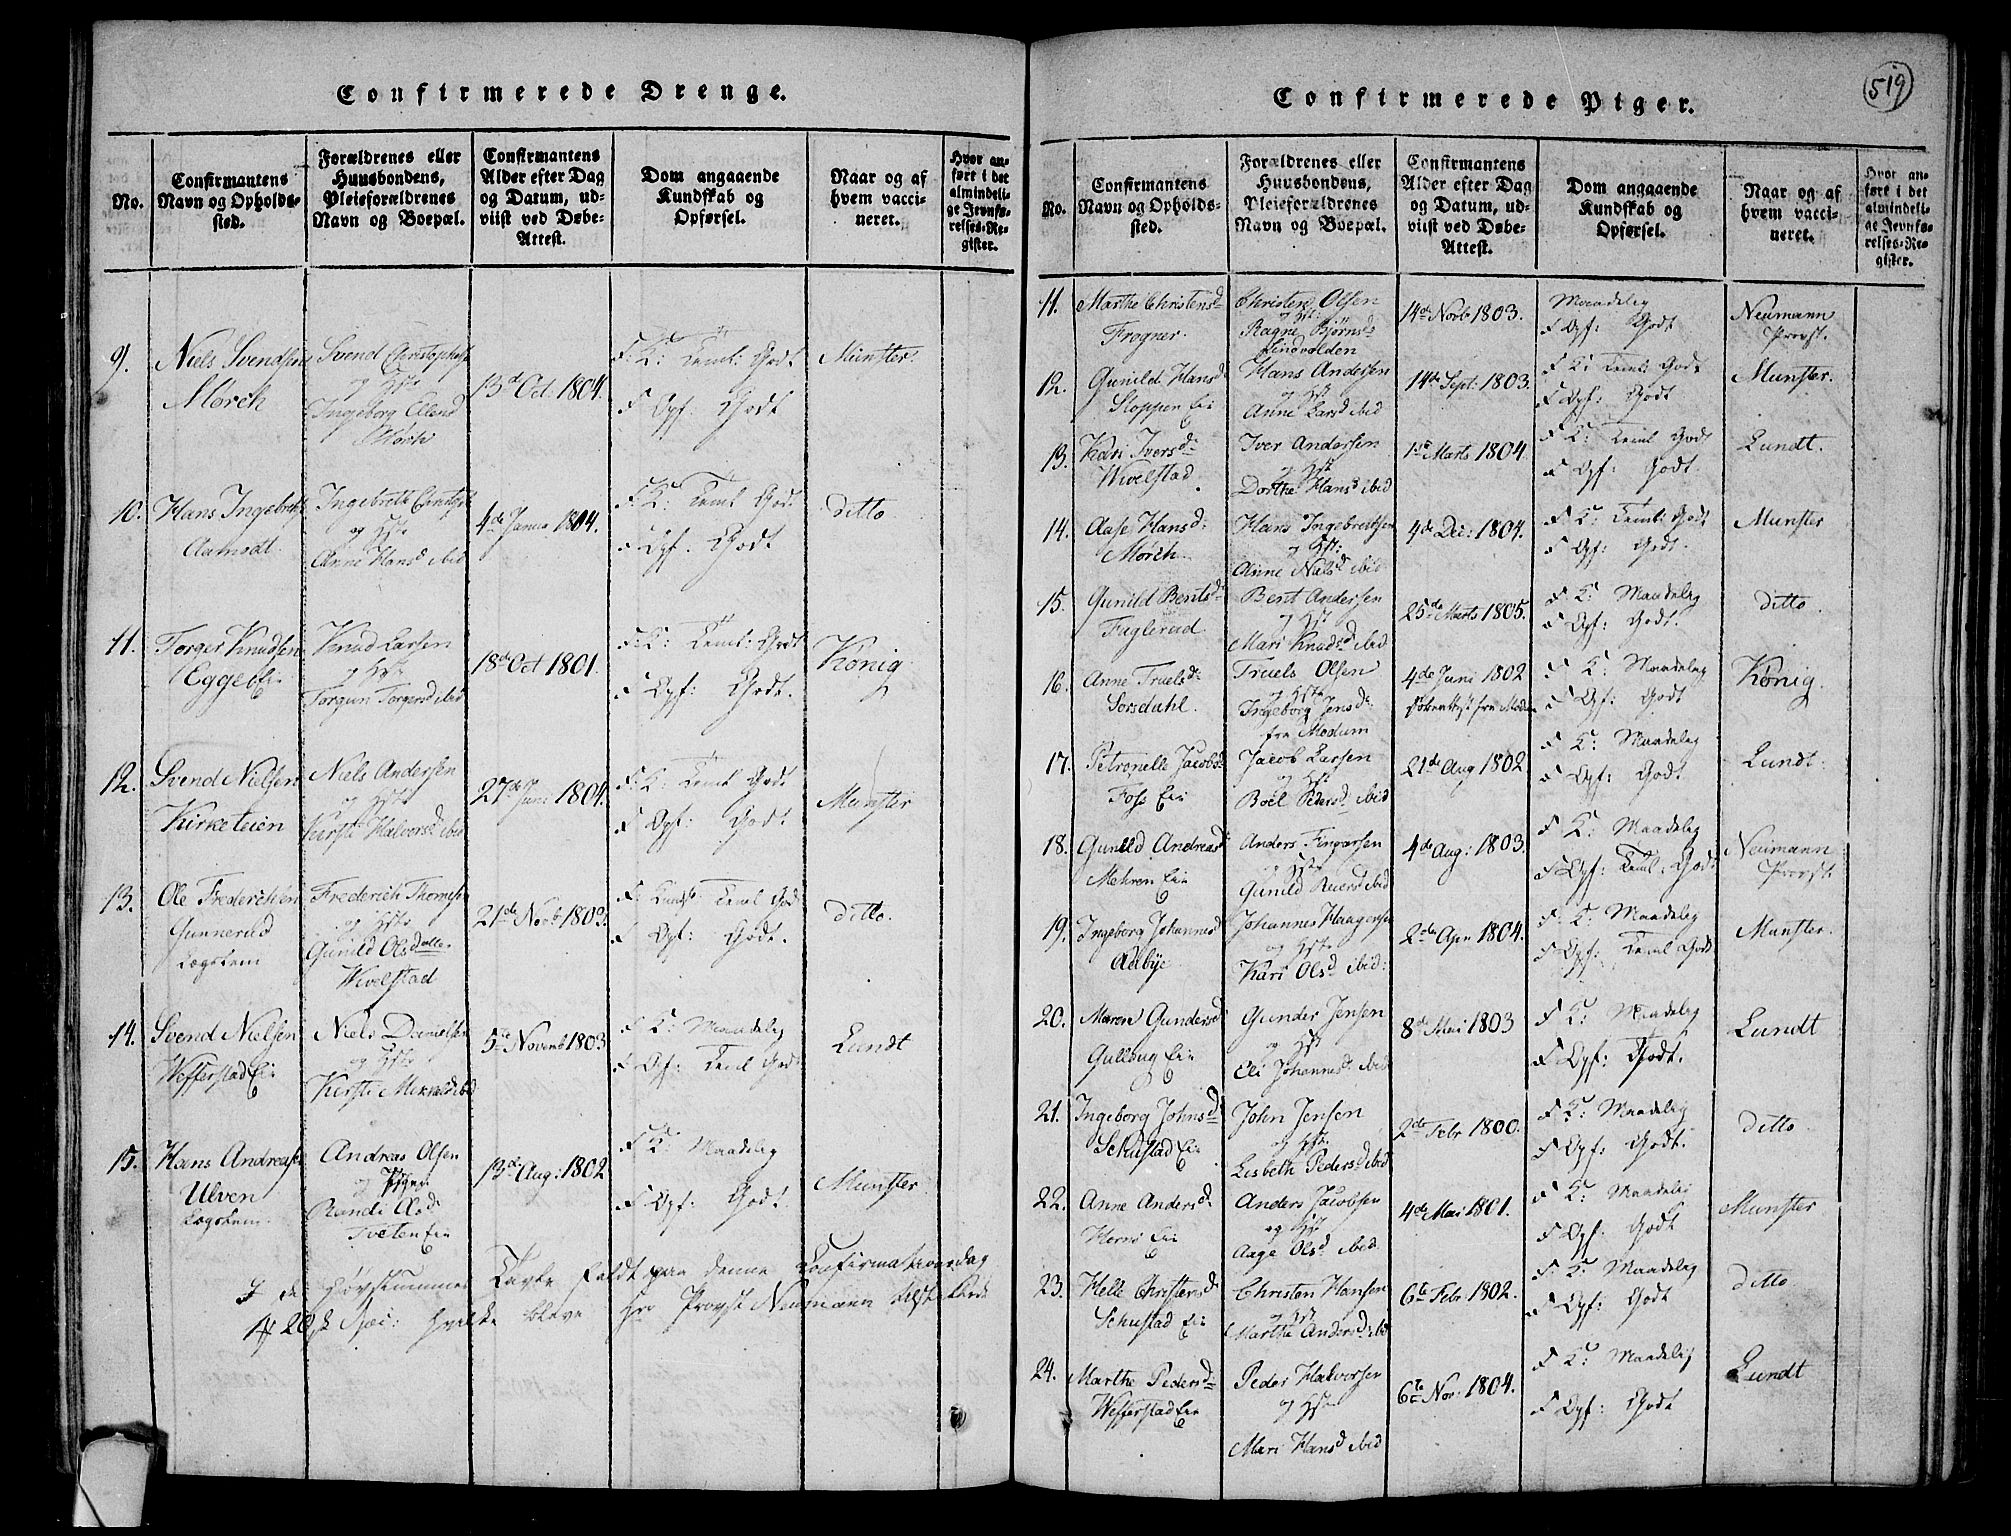 Confirmerede Drenge.
No.
Confirmantens
Navn og Opholds-
sted.
Forældrenes eller
Huusbondens,
Pleieforældrenes
Navn og Boepæl.
Confirmantens
Alder efter Dag
og Datum, ud-
viist ved Døbe-
Attest.
Dom angaaende
Kundskab og
Opførsel.
Naar og af
hvem vacci-
neret.
Hvor an-
ført i det
almindeli-
ge Jevnfø-
relses-Re-
gister.
9.
Niels Svendsen
Mørch
Svend Christophers
og Hst
Ingeborg
Mørch
13d Oct. 1804.
F: K: Teml: Godt
F Opf: Godt
Munster.
10.
Hans Ingebrets
Aamodt.
Ingebreth Christoph
og Hst
Anne Hansd ibid
4de Janu 1804.
F: K: Teml Godt
F Opf. Godt
ditto
11.
Torger Knudsen
Eggeb Eie
Knud Larsen
og Hst
Torgun Torgersd ibid
18de Oct 1801.
F: K: Teml: Godt
F Opf: Godt.
König
12.
Svend Nielsen
Kirketeien
Niels Andersen
og Hst
Kirsti Halvorsd ibid
27de Juni 1804.
F: K: Teml Godt
F Opf: Godt
Munster
13.
Ole Frederichsen
Gunnerud
Logstem
Frederich Thomesen
og Hst
Gunild Olsdatter
Wivelstad
21de Novb: 1803.
F: Kundsk: Teml God
F Opf: Godt.
ditto.
14.
Svend Nielsen
Wefferstad Eie
Niels Danielsen
og Hst
Kirsti
5te Novemb 1803
F K: Maadelig
F Opf: Teml Godt
Lundt
15.
Hans Andreas
Ulven
Logstem.
Andreas Olsen
og Piger
Randi
Tveten Eie
13de Aug: 1802
F K: Maadelig
F Opf: Godt.
Munster
Tavle faldt paa denne Confirmationsdag
20 sk Spec: hvilke bleve Hr Provst Neumann
Confirmerede Piger.
519
No.
Confirmantens
Navn og Opholds-
sted.
Forældrenes eller
Huusbondens,
Pleieforældrenes
Navn og Boepæl.
Confirmantens
Alder efter Dag
og Datum, ud-
viist ved Døbe-
Attest.
Dom angaaende
Kundskab og
Opførsel.
Naar og af
hvem vacci-
neret.
Hvor an-
ført i det
almindeli-
ge Jevnfø-
relses-Re-
gister.
11.
Marthe Christensd
Frogner.
Christen Olsen
og Hst:
Ragne Björnsd
Lindvolden
14de Novb 1803.
Maadelig
F Opf: Godt
Neumann
Provst.
12.
Gunild Hansd
Stoppen Eie
Hans Andersen
og Hst
Anne Larsd ibid
14de Sept: 1803.
F K: Teml: Godt
F Opf: Godt
Munster.
13.
Kari Iversd:
Wivelstad
Iver Andersen
og Hst
Dorthe Hansd ibid
1ste Marts 1804.
F K: Teml Godt
F Opf: Godt.
Lundt.
14.
Aase Hansd:
Mørch
Hans Ingebretsen
og Hst:
Anne Nielsd ibid
4de Dec: 1804.
F K: Teml: Godt
F Opf: Godt.
Munster
15.
Gunild Bentsd
Fuglerud
Bent Andersen
og Hst
Mari Knudsd ibid
25de Marts 1805.
F K: Maadelig
F Opf: Godt.
ditto.
16.
Anne Truelsd:
Sorsdahl.
Truels Olsen
og Hst
Ingeborg Jensd:
fra Modum
4de Juni 1802
Døbeattest fra Modum
F K: Maadelig
F Opf: Godt
König.
17.
Petronelle Jacobsd
Foss Eie
Jacob Larsen
og Hst
Boel Pedersd ibid
21de Aug 1802
F K: Maadelig
F Opf: Godt
Lundt.
18.
Gunild Andreasd:
Mehren Eie
Anders Fingarsen
og Hst
Gunild Reiersd ibid
4de Aug: 1803.
F K: Maadelig
F Opf: Teml: Godt
Neumann
Provst
19.
Ingeborg Johannesd
Aabye
Johannes Haagensen
og Hst
Kari Olsd ibid:
2de Apr 1804.
F K: Maadelig
F Opf: Teml Godt
Munster.
20.
Maren Gundersd
Gulhaug Eie
Gunder Jensen
og Hst
Eli Johannesd: ibid
8de Mai 1803
F K: Maadelig
F Opf: Godt.
Lundt
21.
Ingeborg Johnsd
Schustad Eie
John Jensen
og Hst.
Lisbeth Pedersd ibid
2de Febr 1800.
F K: Maadelig
F Opf: Godt.
ditto.
22.
Anne Andersd
Hernø Eie
Anders Jacobsen
og Hst
Aage Olsd ibid.
4de Mai 1801.
F K: Maadelig
F Opf: Godt
Munster
23.
Helle Christensd
Schustad Eie
Christen Hansen
og Hst
Marthe Andersd ibid
6te Febr 1802.
F: K: Maadelig
F Opf: Godt
ditto
24.
Marthe Pedersd:
Wefferstad Eie
Peder Halvorsen
og Hst
Mari Hansd ibid
6te Nov: 1804.
F K: Maadelig
F Opf: Godt
Lundt